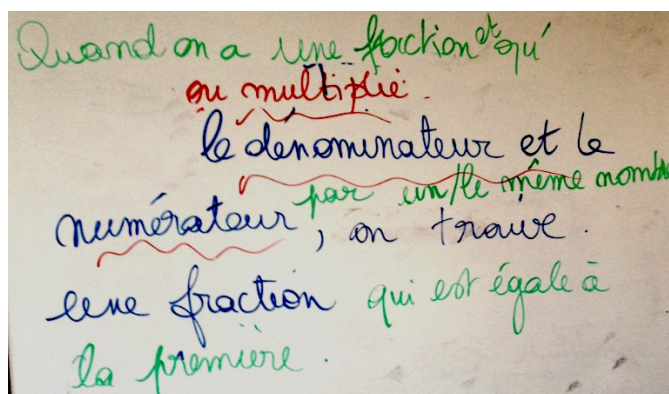 Quand on a une fraction et qu'
on multiplie.
le dénominateur et le
par un/le même nombre
numérateur, on trouve.
une fraction qui est égale à
la première.